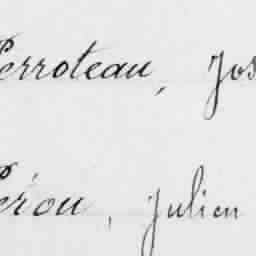 Perroteau, Jos
Pérou, Julien